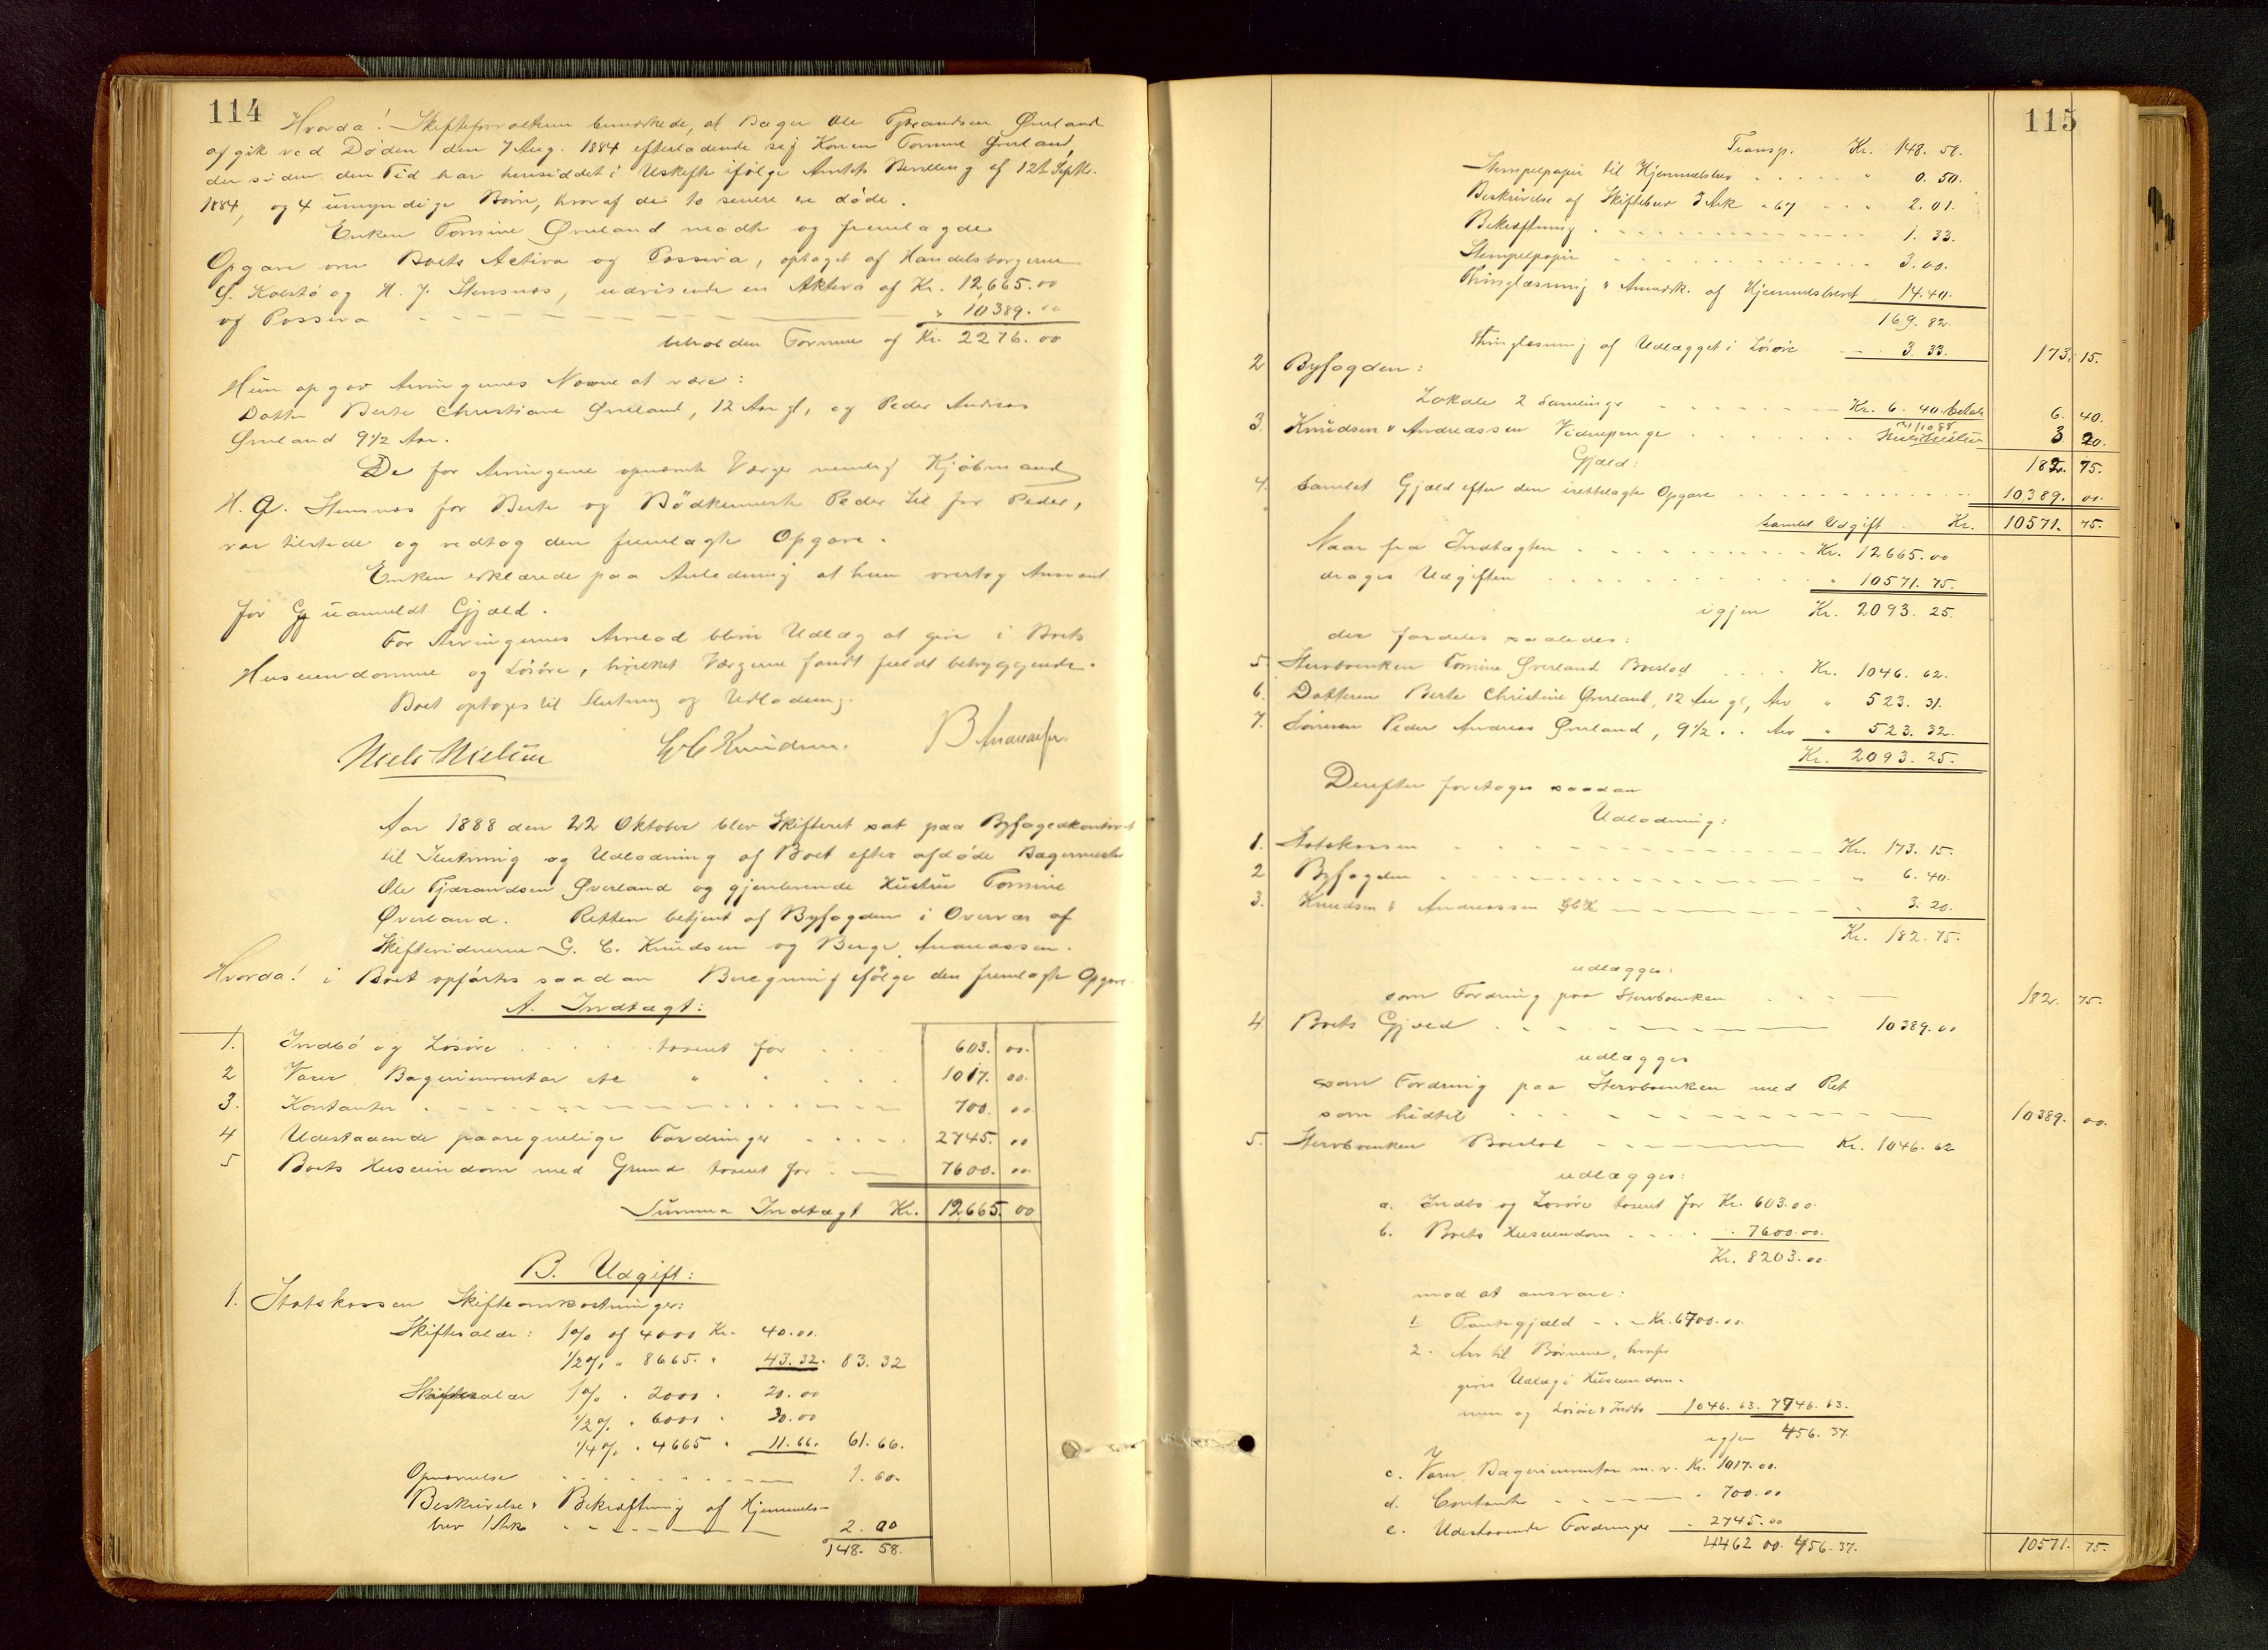 114
Hvorda! Skifteforvalteren bemærkede, at Bager Ole Tjerandsen Øverland
afgik ved Døden den 7 Aug. 1884 efterladende sig Konen Tomine Øverland,
der siden den Tid har hensiddet i Uskifte ifølge Amtets Bevilling af 12te Septbr.
1884, og 4 umyndige Børn, hvoraf de to senere ere døde.
Enken Tomine Øverland mødte og fremlagde
Opgave over Boets Activa og Passiva, optaget af Handelsborgerne
S. Kolstø og H. J. Stensnæs, udvisende en Aktiva af Kr. 12,665.00
og Passiva " 10389.00
beholden Formue af Kr. 2276.00
Hun opgav Arvingernes Navne at være:
Datter Berte Christiane Øverland, 12 Aar gl, og Peder Andreas
Øverland 9 1/2 Aar.
De for Arvingerne opnævnte Værger nemlig Kjøbmand
H. J. Stensnæs for Berte og Bødkermester Peder Lil for Peder,
var tilstede og vedtog den fremlagte Opgave.
Enken erklærede paa Anledning at hun overtog Ansvaret
for uanmeldt Gjæld.
For Arvingernes Arvelod bliver Udlæg at give i Boets
Huseiendomme og Løsøre, hvilket Værgerne fandt fuldt betryggende.
Boet optoges til Slutning og Udlodning.
Niels Nielsen G C Knudsen. B Andreassen.
Aar 1888 den 22 Oktober blev Skifteret sat paa Byfogedkontoret
til Slutning og Udlodning af Boet efter afdøde Bagermester
Ole Tjerandsen Øverland og gjenlevende Hustru Tomine
Øverland. Retten betjent af Byfogden i Overvær af
Skiftevidnerne G. C. Knudsen og Berge Andreassen.
Hvorda! i Boet opførtes saadan Beregning ifølge den fremlagte Opgave.
A. Indtægt:
1. Indbo og Løsøre taxeret for 603. 00.
2 Varer, Bageriinventar etc " 1017. 00.
3. Kontanter 700. 00
4 Udestaaende paaregnelige Fordringer 2745. 00
5 Boets Huseiendom med Grund taxeret for 7600. 00.
Summa Indtægt Kr. 12,665. 00
B. Udgift:
1. Statskassen Skifteomkostninger:
Skifteafde: 1% af 4000 Kr. 40.00.
1/2% " 8665. " 43.32. 83.32
Skiftesalær 1% " 2000 " 20.00
1/2% " 6000 " 30.00
1/4% " 4665 " 11.66. 61.66.
Opnævnelse 1.60.
Beskrivelse & Bekræftning af Hjemmels-
brev 1 Ark 2.00
148.58.
115
Transp. Kr. 148.58.
Stempelpapir til Hjemmelsbrev " 0.50.
Beskrivelse af Skiftebrev 3 Ark à 67 " 2.01.
Bekræftning 1.33.
Stempelpapir 3.00.
Thinglæsning & Anmærk. af Hjemmelsbrevet 14.40.
169.82.
Thinglæsning af Udlægget i Løsøre 3.33. 173. 15.
2 Byfogden:
Lokale 2 Samlinger Kr. 6.40 betalt 6. 40.
22/10 88
3. Knudsen & Andreassen Vidnepenge Niels Nielsen 3 20.
Gjæld: 182. 75.
4. Samlet Gjæld efter den irettelagte Opgave 10389. 00.
Samlet Udgift. Kr. 10571. 75.
Naar fra Indtægten Kr. 12665.00
drages Udgiften " 10571.75.
igjen Kr. 2093.25.
der fordeles saaledes:
5 Stervboenken Tomine Øverland Boeslod Kr. 1046.62.
6. Datteren Berte Christine Øverland, 12 Aar gl, Arv " 523.31.
7. Sønnen Peder Andreas Øverland, 9 1/2 " " Arv " 523.32.
Kr. 2093.25.
Derefter foretages saadan
Udlodning:
1. Statskassen Kr. 173.15.
2 Byfogden " 6.40.
3. Knudsen & Andreassen GCK " 3.20.
Kr. 182.75.
udlægges:
som Fordring paa Stervboenken 182. 75.
4. Boets Gjæld 10389.00
udlægges
som Fordring paa Stervboenken med Ret
som hidtil 10389. 00.
5. Stervboenken Boeslod Kr. 1046.62
udlægges:
a. Indbo og Løsøre taxeret for Kr. 603.00.
b. Boets Huseiendom " 7600.00.
Kr. 8203.00.
mod at ansvare:
1. Pantegjæld Kr. 6700.00.
2. Arv til Børnene, hvorfor
gives Udlæg i Huseiendom-
men og Løsøre & Indbo 1046.63. 7746.63.
igjen 456.37.
c. Varer, Bageriinventar m.v. Kr. 1017.00.
d. Contanter " 700.00
e. Udestaaende Fordringer " 2745.00
4462.00. 456.37. 10571. 75.